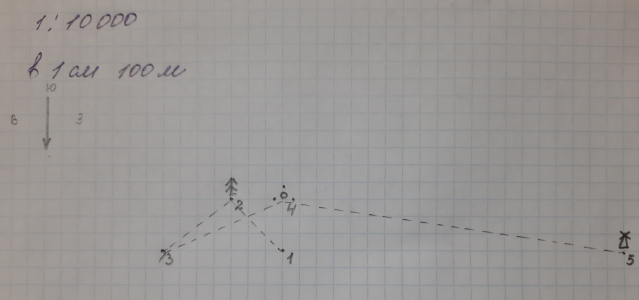 1:10000
в 1 см 100 м
Ю
В З
2
4
3
1
5